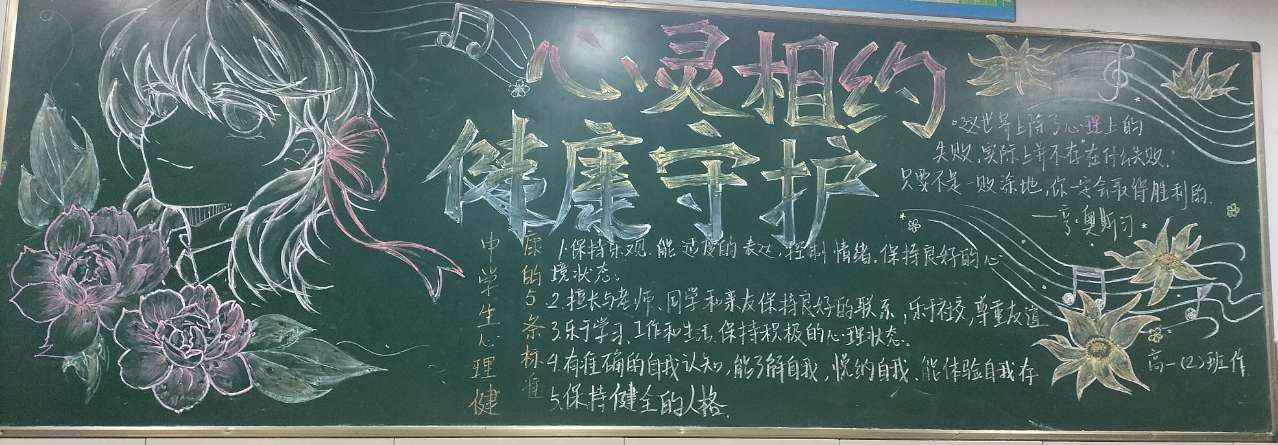 心灵相约
健康守护
“这世界上除了心理上的
失败,实际上并不存在什么失败.
只要不是一败涂地,你一定会取得胜利的.
—亨·奥斯汀
中学生心理健
康的5条标准
1.保持乐观.能适度的表达,控制情绪,保持良好的心
境状态。
2.擅长与老师、同学和亲友保持良好的联系,乐于社交,尊重友谊
3.乐于学习、工作和生活,保持积极的心理状态.
4.有准确的自我认知,能了解自我,悦纳自我、能体验自我存
5.保持健全的人格.
高一(2)班作